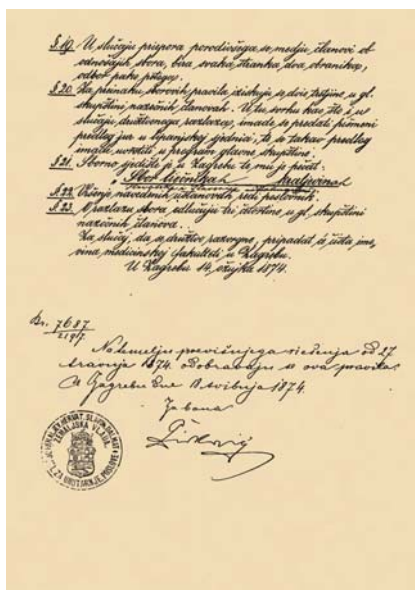 §.19. U slučaju prepora porodivšega se, medju članovi ob
odnošajih sbora, bira svaka stranka dva obranika,
odbor pako petoga.
§.20. Za preinaku sborovih pravila iziskuje se dvie trećine, u gl.
skupštini nazočnih članovah. U tu svrhu kao što i u
slučaju družtvenoga razlaza, imade se predati pismeni
predlog jur u lipanjskoj sjednici, te se takav predlog
imade uvrstiti u program glavne skupštine.
§.21. Sborno sjedište je u Zagrebu te mu je pečat:
Sbor liečnika kraljevina
§.22. Vršenje navedenih ustanovah redi predsjednik.
§.23. O razlazu sbora odlučuju tri četvrtine, u gl. skupštini
nazočnih članova.
Za slučaj, da se družtvo razvrgne, pripadat će čista imo,
vina medicinskoj fakulteti u Zagrebu.
U Zagrebu 14. ožujka 1874.
Br. 7687
2197.
Na temelju previšnjega riešenja od 27
travnja 1874. odobravaju se ova pravila.
U Zagrebu dne 8 svibnja 1874.
Za bana
HRVAT. SLAV. DALMAT.
ZEMALJSKA VLADA
ZA UNUTARNJE POSLOVE